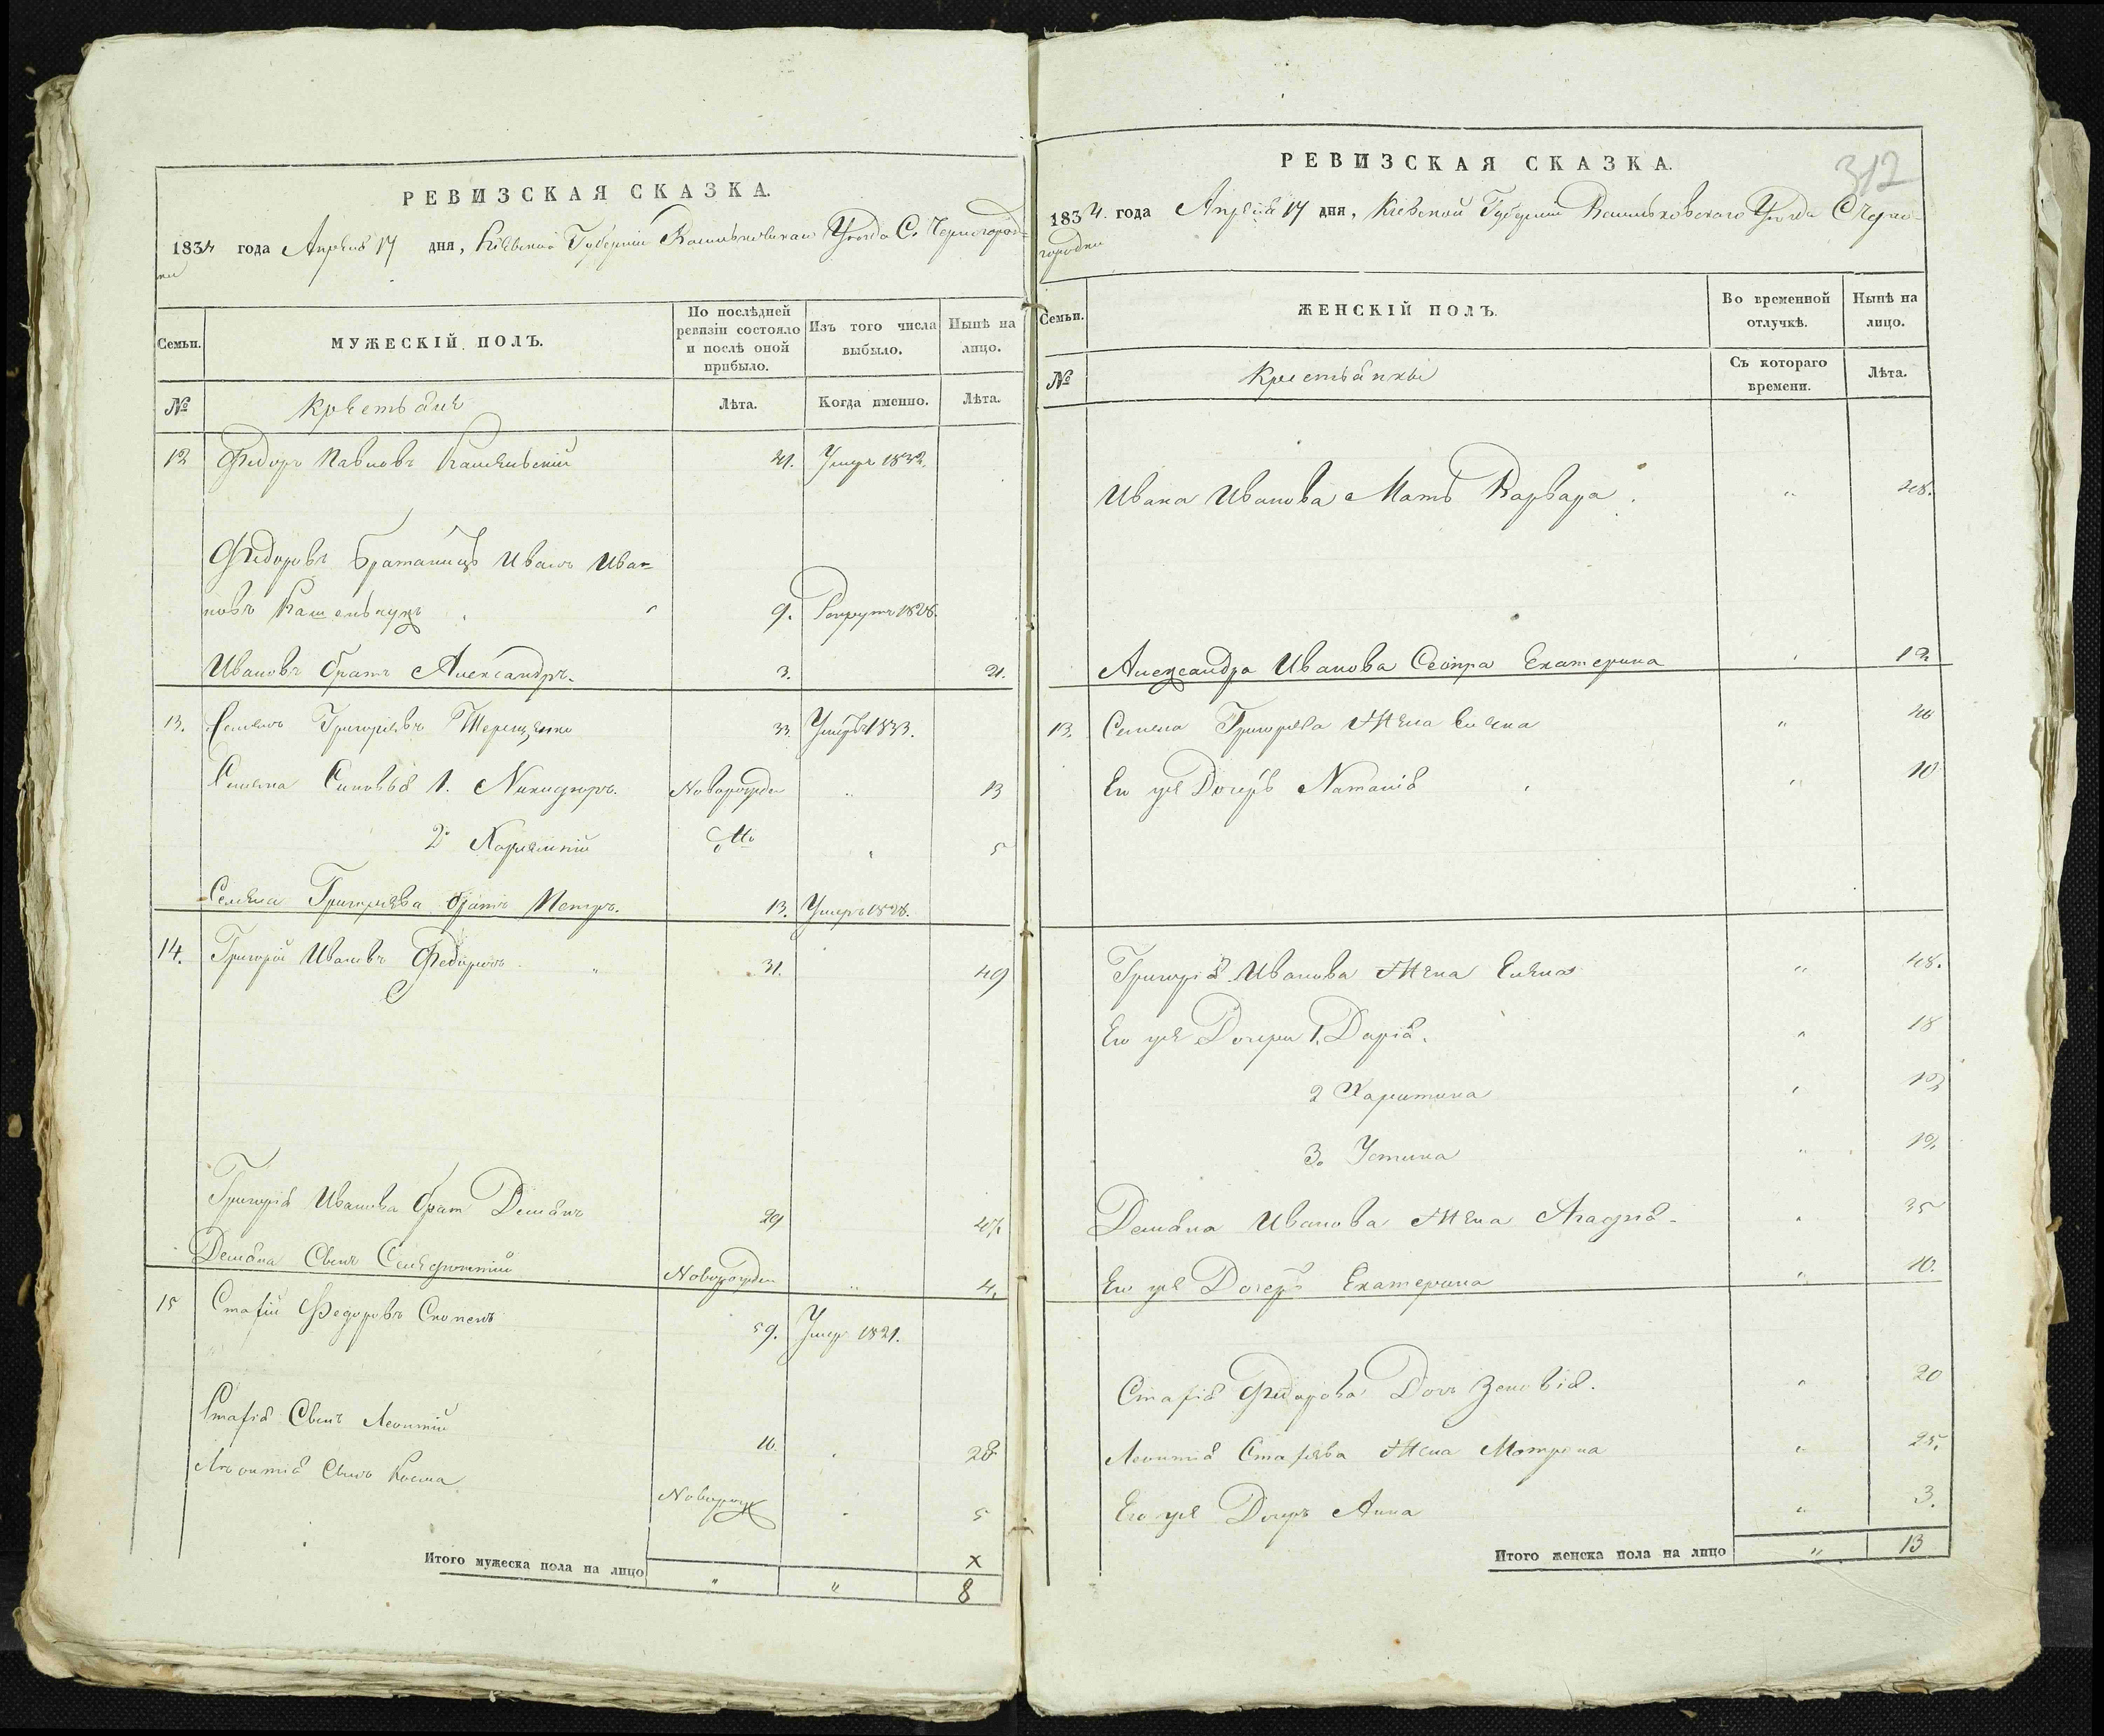 РЕВИЗСКАЯ СКАЗКА.
1834 года Апреля 17 дня, Кіевской Губерніи Васильковскаго Уезда С. Черногород=
ки
Семьи. МУЖЕСКІЙ ПОЛЪ. По послѣдней ревизіи состояло и послѣ оной прибыло. Изъ того числа выбыло. Нынѣ на лицо.
№ Крестьяне Лѣта. Когда именно. Лѣта.
12 Федоръ Павловъ 21. Умеръ 1832.
Федоровъ братаничъ Иванъ Ива=
новъ 9. Рекрутъ 1828.
Ивановъ братъ Александръ. 3. 21.
13. Семенъ Григорьевъ Терещенко 33 Умеръ 1833.
Семена Сыновья 1. Никифоръ. Новорожден " 13
2. " 5
Семена Григорьева братъ Петръ. 13. Умеръ 1828.
14. Григорій Ивановъ Федоровъ " 31. 49
Григорія Иванова братъ Демьянъ 29 47.
Демьяна Сынъ Новорожден " 4.
15 Стафій Федоровъ 59. Умеръ 1821.
Стафія Сынъ Леонтій 10. 28
Леонтія Сынъ Косма Новорож 5
Итого мужеска пола на лицо " " 8
РЕВИЗСКАЯ СКАЗКА.
312
1834. года Апреля 17 дня, Кіевской Губерніи Васильковскаго Уезда С Черно-
городки
Семьи. ЖЕНСКІЙ ПОЛЪ. Во временной отлучкѣ. Нынѣ на лицо.
№ Крестьянки Съ котораго времени. Лѣта.
Ивана Иванова Мать Варвара. " 48.
Александра Иванова Сестра Екатерина " 12
13. Семена Григорьева Жена Елена " 40
Его же Дочерь Наталія " 10
Григорія Иванова Жена Елена " 48.
Его же Дочери 1. Дарія. " 18
2 Харитина "
3. Устина "
Демьяна Иванова Жена Агафія - " 35
Его же Дочерь Екатерина " 10.
Стафія Федорова Дочь Зеновія. " 20
Леонтія Стафіева Жена Мотрона " 25.
Его же Дочерь Анна " 3.
Итого женска пола на лицо " 13